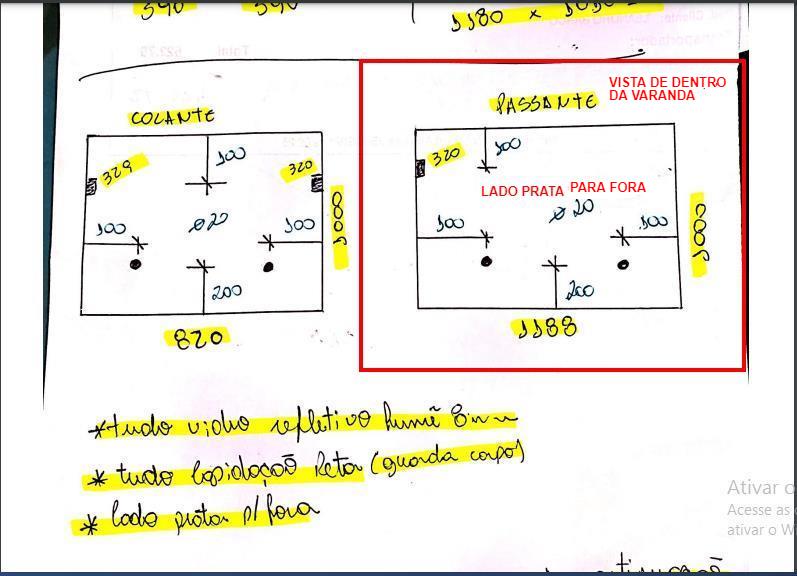 390 390
1180 x 1030
Total 622,79
VISTA DE DENTRO
DA VARANDA
COLANTE
PASSANTE
100
329
320
320
100
LADO PRATA PARA FORA
ø20
ø 20
100
100
1000
100
100
1000
200
200
820
1188
*tudo vidro refletivo fumê 8mm
* tudo lapidação Reta (guarda corpo)
* lado prata p/ fora
Ativar o
Acesse as
ativar o W
continuação